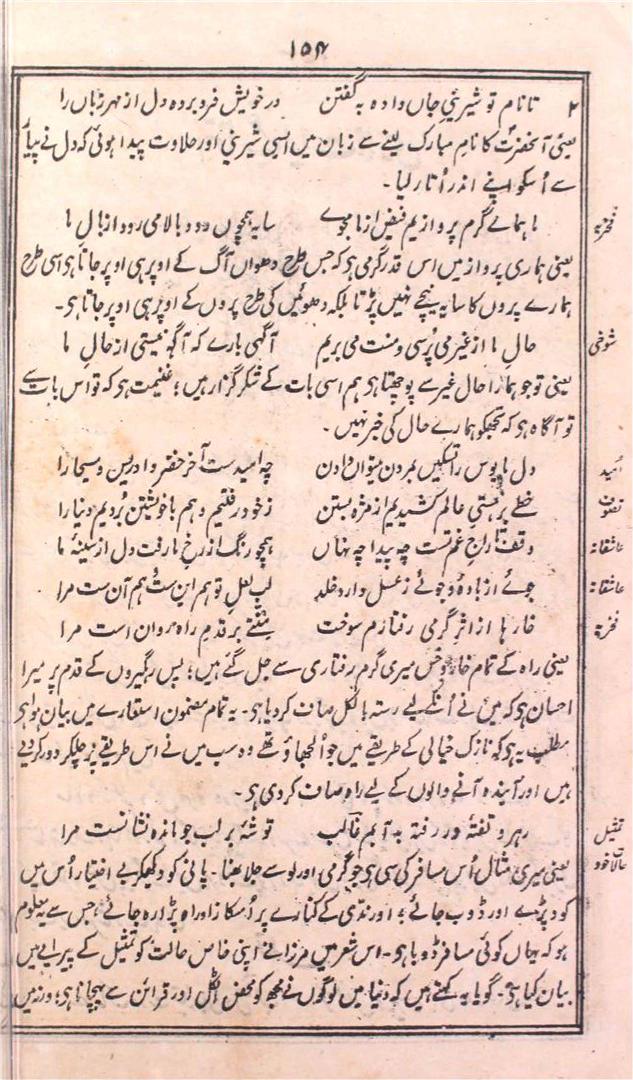 ۱۵۴
۲ تا نام تو شیرینیِ جاں دادہ بہ گفتن در خویش فرو بردہ دل از مہر زباں را
یعنی آنحضرتؐ کا نامِ مبارک لینے سے زبان میں ایسی شیرینی اور حلاوت پیدا ہوئی کہ دل نے پیار
سے اُسکو اپنے اندر اُتار لیا۔
فخریہ ما ہمائے گرم پروازیم فیض از ما مجوے سایہ ہمچوں دود بالا می رود از بالِ ما
یعنی ہماری پرواز میں اس قدر گرمی ہو کہ جس طرح دھواں آگ کے اوپر ہی اوپر جاتا ہو اسی طرح
ہمارے پروں کا سایہ نیچے نہیں پڑتا بلکہ دھوئیں کی طرح پروں کے اوپر ہی اوپر جاتا ہو۔
شوخی حالِ ما از غیر می پُرسی و منت می بریم آگہی بارے کہ آگہ نیستی از حالِ ما
یعنی تو جو ہمارا حال غیر سے پوچھتا ہو ہم اسی بات کے شکر گزار ہیں؛ غنیمت ہو کہ تو اس بات سے
تو آگاہ ہو کہ تجھکو ہمارے حال کی خبر نہیں۔
اُمید دلِ مایوس را تسکیں بمردن میتواں دادن چہ امیدست آخر خضر و ادریس و مسیحا را
تصوف خطے بر ہستیِ عالم کشیدیم از مژہ بستن ز خود رفتیم و ہم با خویشتن بُردیم دنیا را
عاشقانہ وقفِ تاراجِ غمِ تست چہ پیدا چہ نہاں ہمچو رنگ از رخِ ما رفت دل از سینۂ ما
عاشقانہ جوئے از بادہ و جوئے ز عسل دارد خلد لبِ لعلِ تو ہم این ست و ہم آن ست مرا
فخریہ خارہا از اثرِ گرمیِ رفتارم سوخت منتے بر قدمِ راہ رواں است مرا
یعنی راہ کے تمام خار و خس میری گرم رفتاری سے جل گئے ہیں؛ پس رہگیروں کے قدم پر میرا
احسان ہو کہ میں نے اُنکے لیے رستہ بالکل صاف کر دیا ہو۔ یہ تمام مضمون استعارے میں بیان ہوا ہو
مطلب یہ ہو کہ نازک خیالی کے طریقے میں جو اُلجھاؤ تھے وہ سب میں نے اس طریقے پر چلکر دور کر دیے
ہیں اور آیندہ آنے والوں کے لیے راہ صاف کر دی ہو۔
تمثیل حالات خود رہروِ تفتۂ در رفتہ بہ آبم غالب توشۂ بر لبِ جو ماندہ نشانست مرا
یعنی میری مثال اُس مسافر کی سی ہو جو گرمی اور لو سے جلا بھنا۔ پانی کو دیکھکر بے اختیار اُس میں
کود پڑے اور ڈوب جائے؛ اور ندی کے کنارے پر اُسکا زادِ راہ پڑا رہ جائے، جس سے یہ معلوم
ہو کہ یہاں کوئی مسافر ڈوبا ہو۔ اس شعر میں مرزا نے اپنی خاص حالت کو تمثیل کے پیرایے میں
بیان کیا ہو۔ گویا یہ کہتے ہیں کہ دنیا میں لوگوں نے مجھ کو محض اٹکل اور قرائن سے پہچانا ہو؛ ورنہ میں